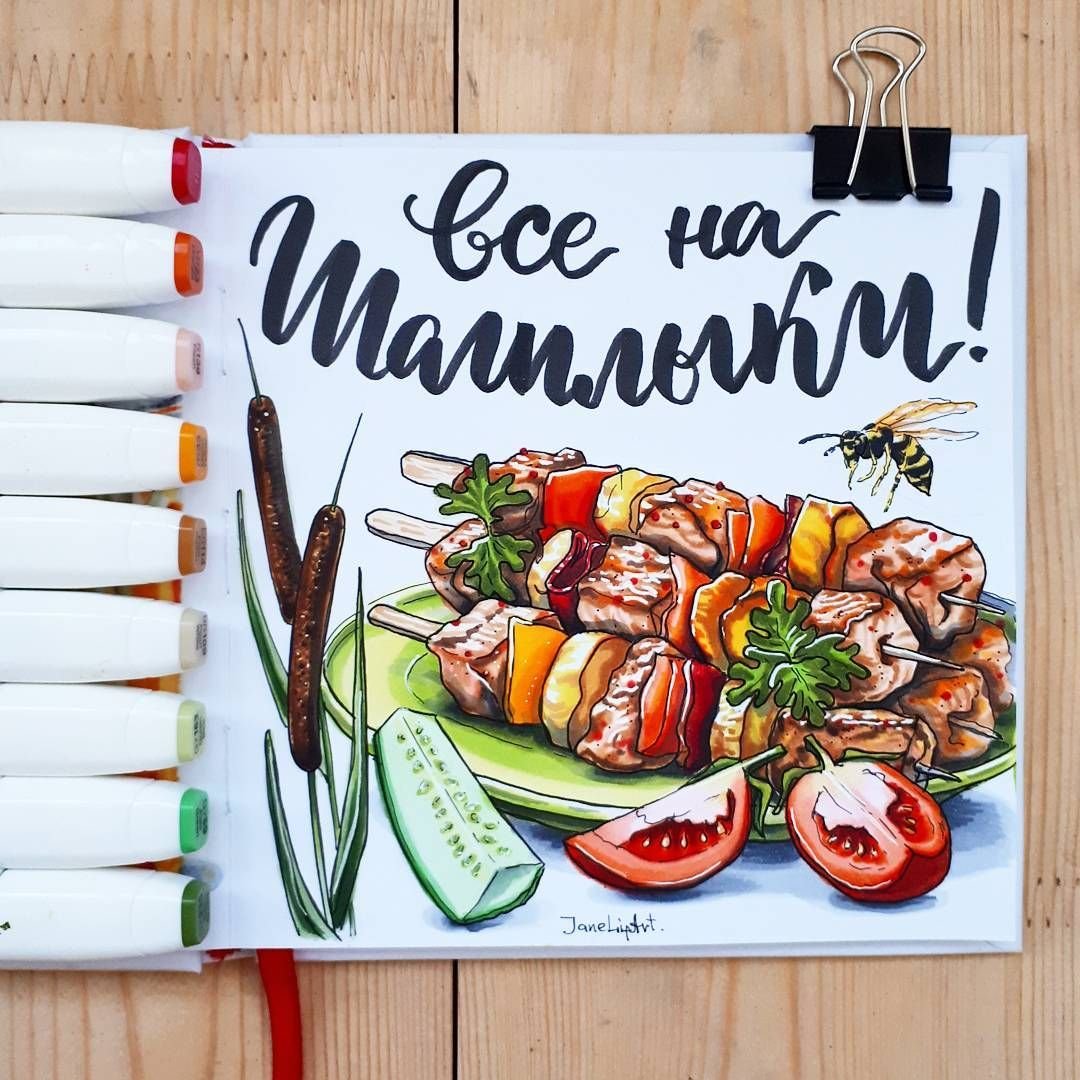 все на
Шашлыки!
JaneLipArt.